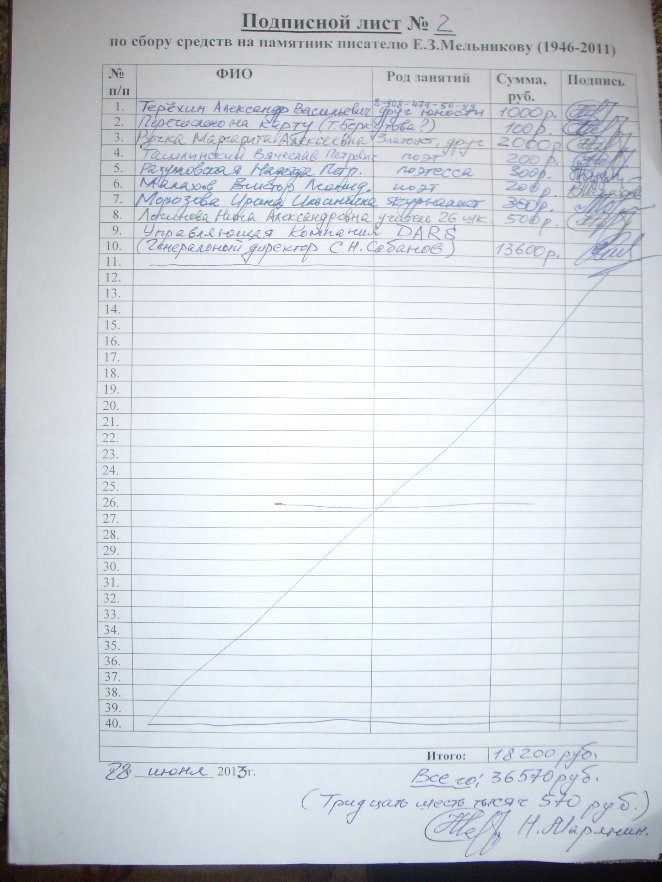 Подписной лист № 2
по сбору средств на памятник писателю Е.З.Мельникову (1946-2011)
№ п/п ФИО Род занятий Сумма, руб. Подпись
1. Терёхин Александр Васильевич друг юности 1000р.
2. Перечислено на карту (Т. ?) 100р.
3. Маргарита Алексеевна Златоуст, друг 2000р.
4. Вячеслав Петрович поэт 200р.
5. Разумовская Надежда Петр. поэтесса 300р.
6. Малахов Виктор поэт 200р.
7. Морозова Ирина журналист 300р.
8. Александровна 26 шк. 500р.
9. Управляющая Компания DARS
10. (Генеральный директор С.Н.Сабанов) 13600р.
11.
12.
13.
14.
15.
16.
17.
18.
19.
20.
21.
22.
23.
24.
25.
26.
27.
28.
29.
30.
31.
32.
33.
34.
35.
36.
37.
38.
39.
40.
Итого: 18200 руб.
28 июня 2013г.
Всего: 36570 руб.
(Тридцать шесть тысяч 570 руб.)